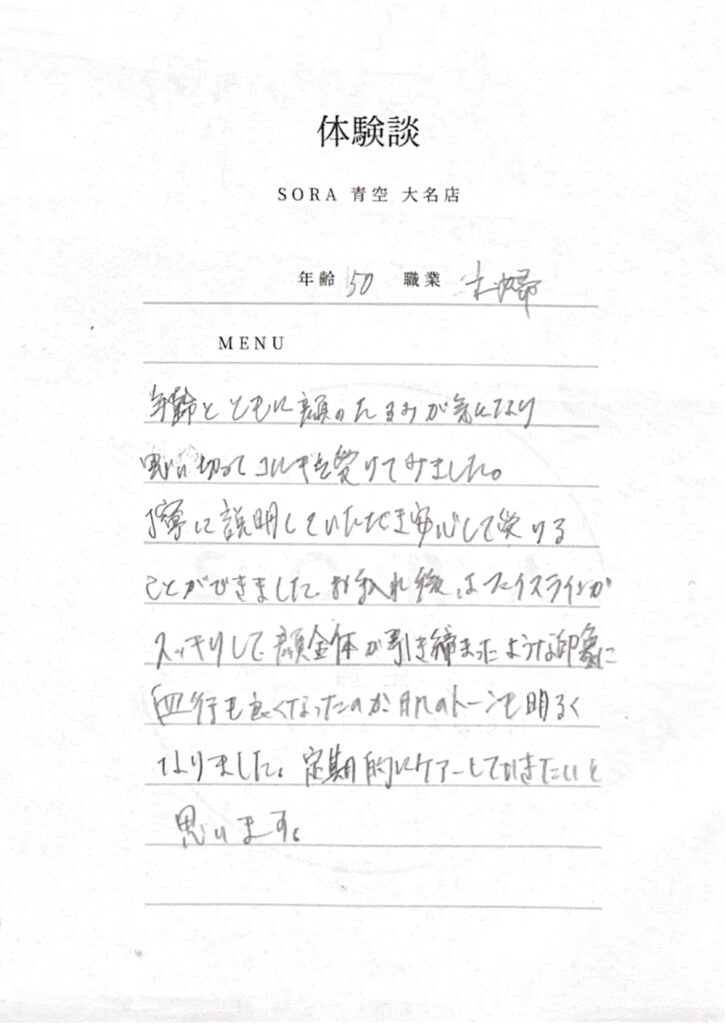 体験談
SORA 青空 大名店
年齢 50 職業 主婦
MENU
年齢とともに顔のたるみが気になり
思い切ってコルギを受けてみました。
丁寧に説明していただき安心して受ける
ことができました。お手入れ後はフェイスラインが
スッキリして顔全体が引き締まったような印象に
血行も良くなったのか肌のトーンも明るく
なりました。定期的にケアーしていきたいと
思います。